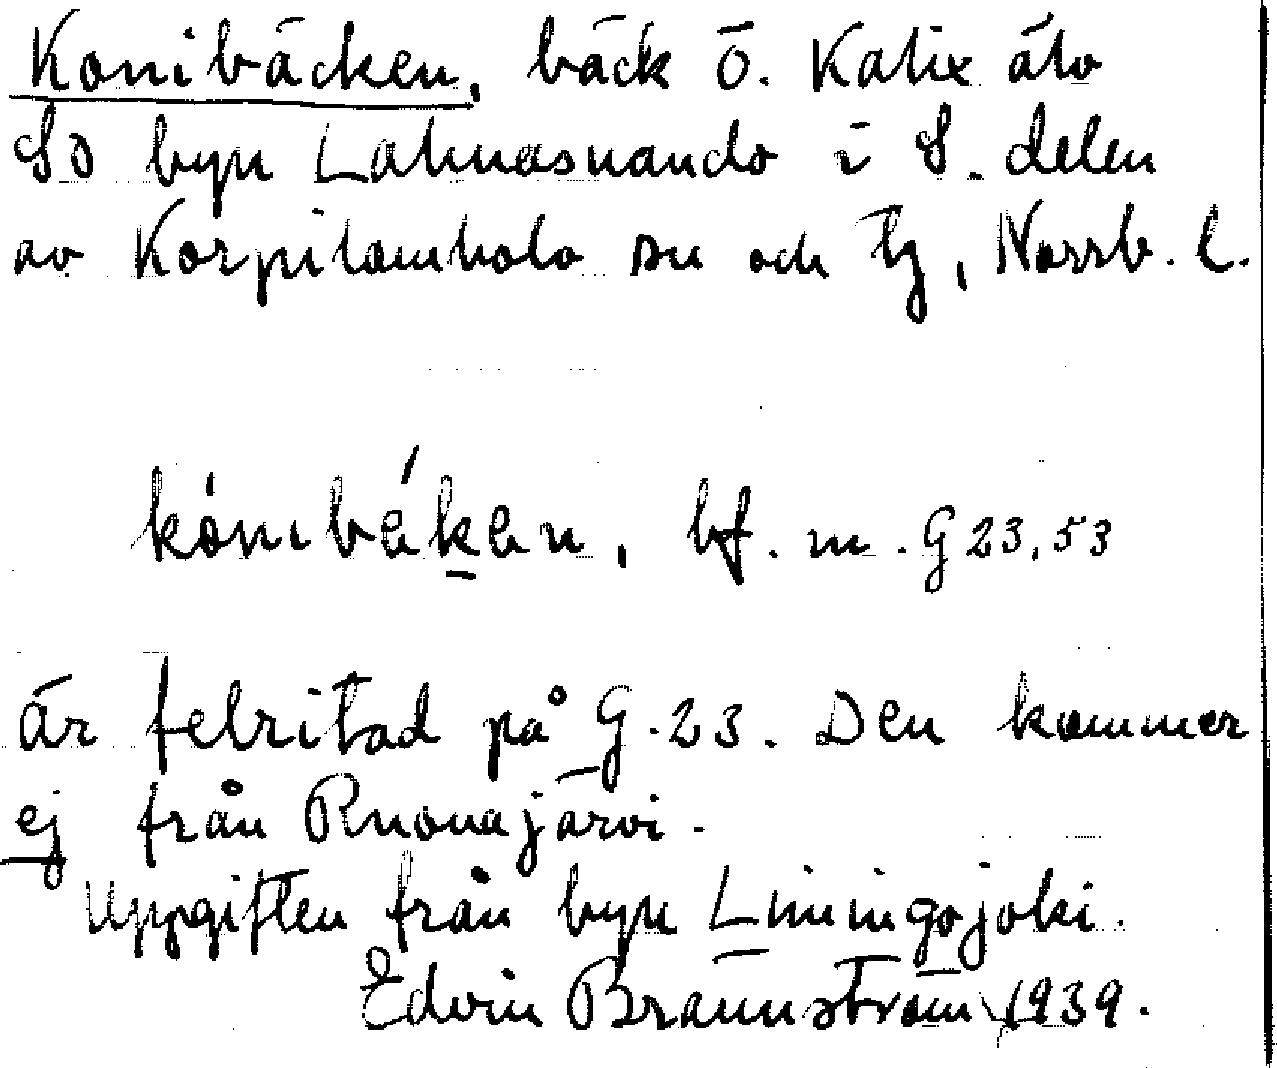 Konibäcken, bäck Ö. Kalix älv
SO byn Lahnasuando i S. delen
av Korpilombolo sn och tg, Norrb. l.
kȯnıbáken, bf. m. G 23, 53
är felritad på G. 23. Den kommer
ej från Ruonajärvi.
Uppgiften från byn Liiningojoki.
Edvin Brännström 1939.